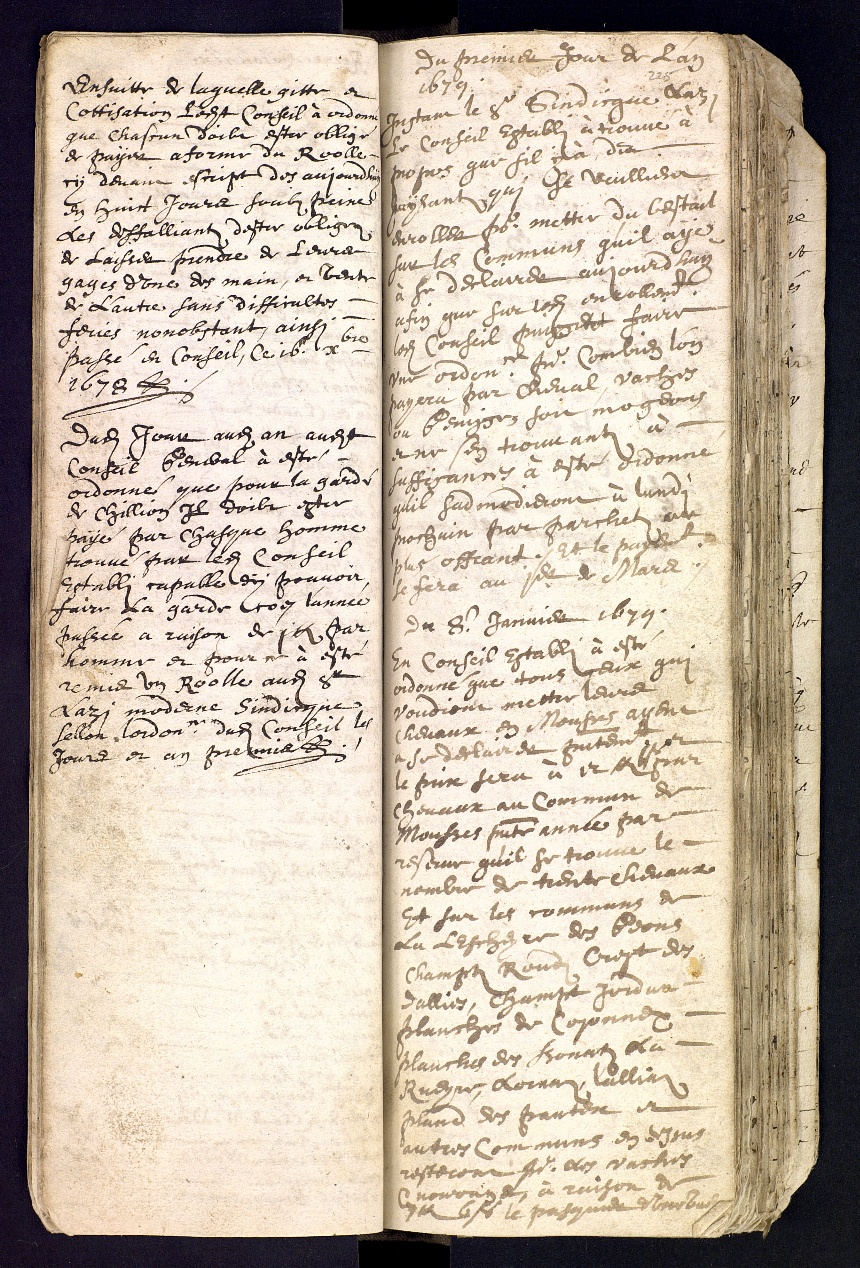 Ensuitte de laquelle gitte et
Cottisation Ledit Conseil à ordonne
que Chascun doibt estre oblige
de payer a forme du Roolle
cy devant escript des aujourdhuy
en huict Jours soubz peine
Les deffaillantz destre obligez
de Laisser prendre de Leurs
gages d'une des main, et vente
de Lautre sans difficultes
feries nonobstant, ainsi
passé en Conseil, Ce 16e xbre
1678
Dudit Jour audit an audit
Conseil General à esté
ordonné que pour la garde
de Chillion Il doibt estre
payé par Chasque homme
trouvé par ledit Conseil
Establj capable de pouvoir
faire La garde lannée
passée a raison de par
homme et pour ce à esté
remis un Roolle audit Sr
Lazj moderne Sindicque
sellon lordonce dudit Conseil les
Jours et an premis
Du premier Jour de Lan
1679.
225
Instant le Sr Sindicque Lazj
Le Conseil Establj à trouvé à
propos que sil y à des
paysant qui se veuillent
enroller pr. mettre du bestail
sur les Communs quil aye
à se declairer aujourdhuy
afin que sur ledit enrollemt
ledit Conseil puisse faire
une ordonce pr. Combien lon
payera par Cheval vaches
ou Genisses soit mogeons
et ne sen trouvant à
suffizances à esté ordonné
quil sadmodieront à lundj
prochain par parchet au
plus offrant. Et le payement
se fera au de Mars.
Du 8e. Janvier 1679.
En Conseil Establj à esté
ordonné que tous ceux quj
voudront mettre leurs
chevaux en Mousses ayent
a se declairer et
le prix sera à par
chevaux au Commun de
Mousses année par
reserve quil se trouve le
nombre de trente Chevaux
Et sur les communs de
La Leschere des Geons
Champt Rond, Crest des
dallies, Champt Jordan
planches de Cojonnex
planches des La
Rueyre,
pland des et
autres Communs en dessus
resteront pr. des vaches
à raison de
le pasquier